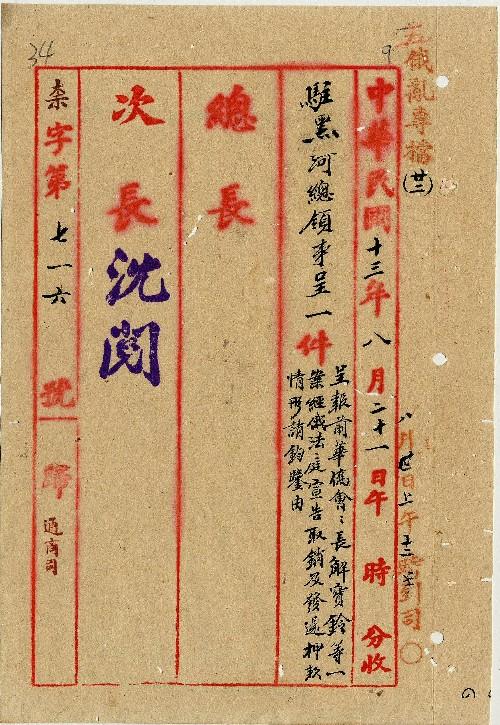 34
9
俄亂專檔(廿三)
八月廿日上午十二 司
中華民國十三年八月二十一日午 時 分收
駐黑河總領事呈一件
呈報前華僑會々長解寶鈴等一
案經俄法庭宣告取銷及發還押款
情形請鈞鑒由
總長
次長 沈閱
字第七一六號 歸通商司